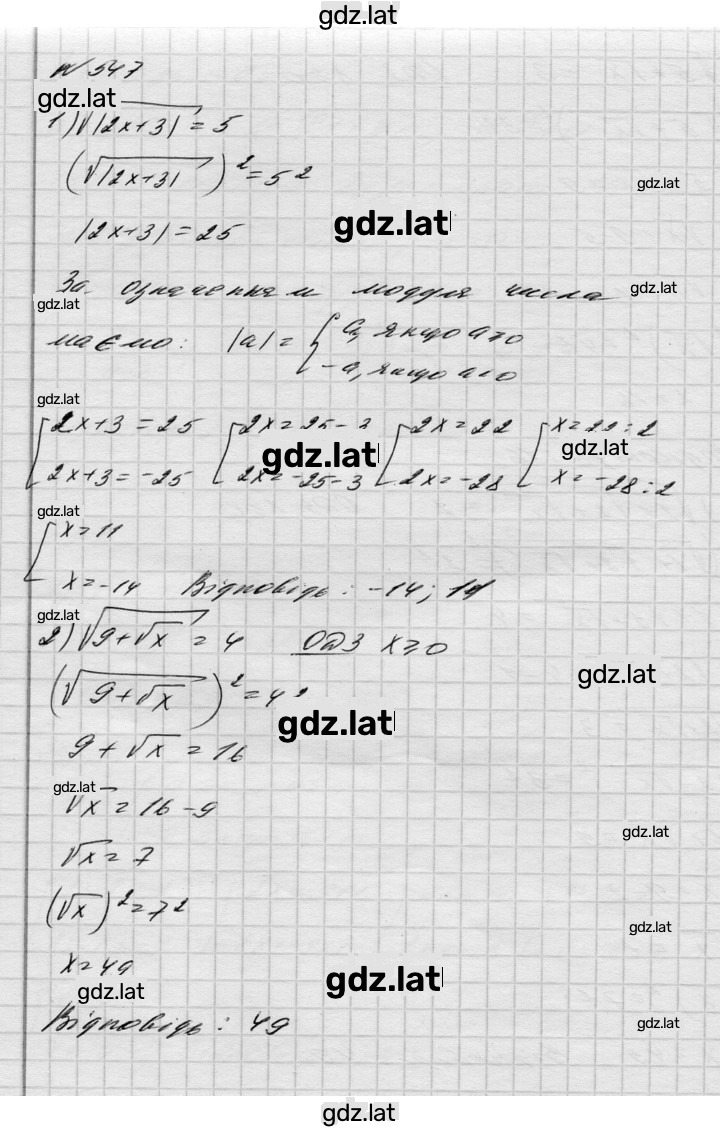 gdz.lat
№ 547
gdz.lat
1) √|2x+3| = 5
(√|2x+3|)² = 5²
gdz.lat
|2x+3| = 25
gdz.lat
За означенням модуля числа
gdz.lat
gdz.lat
маємо: |a| = { a, якщо a ≥ 0
-a, якщо a < 0
gdz.lat
[ 2x+3 = 25 [ 2x = 25-3 [ 2x = 22 [ x = 22:2
gdz.lat
gdz.lat
2x+3 = -25 2x = -25-3 2x = -28 x = -28:2
gdz.lat
[ x = 11
x = -14 Відповідь: -14; 11
gdz.lat
2) √9+√x = 4 ОДЗ x ≥ 0
gdz.lat
(√9+√x)² = 4²
gdz.lat
9 + √x = 16
gdz.lat
√x = 16 - 9
gdz.lat
√x = 7
(√x)² = 7²
gdz.lat
x = 49
gdz.lat
gdz.lat
Відповідь: 49
gdz.lat
gdz.lat